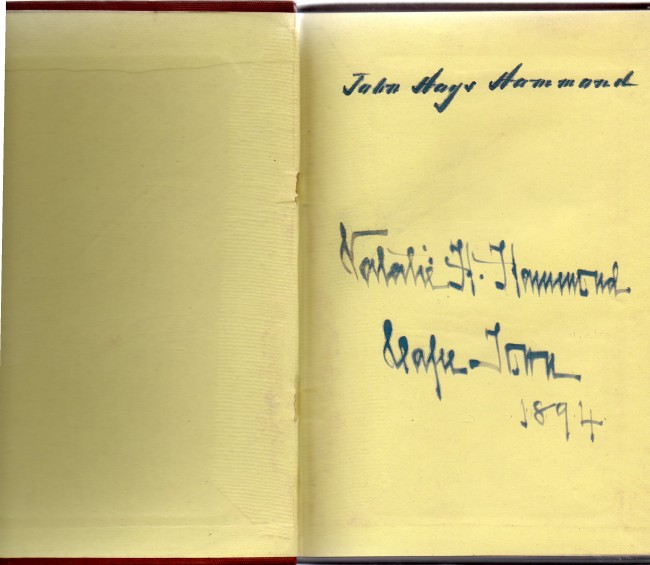 John Hays Hammond
Natalie H. Hammond
Cape-Town
1894